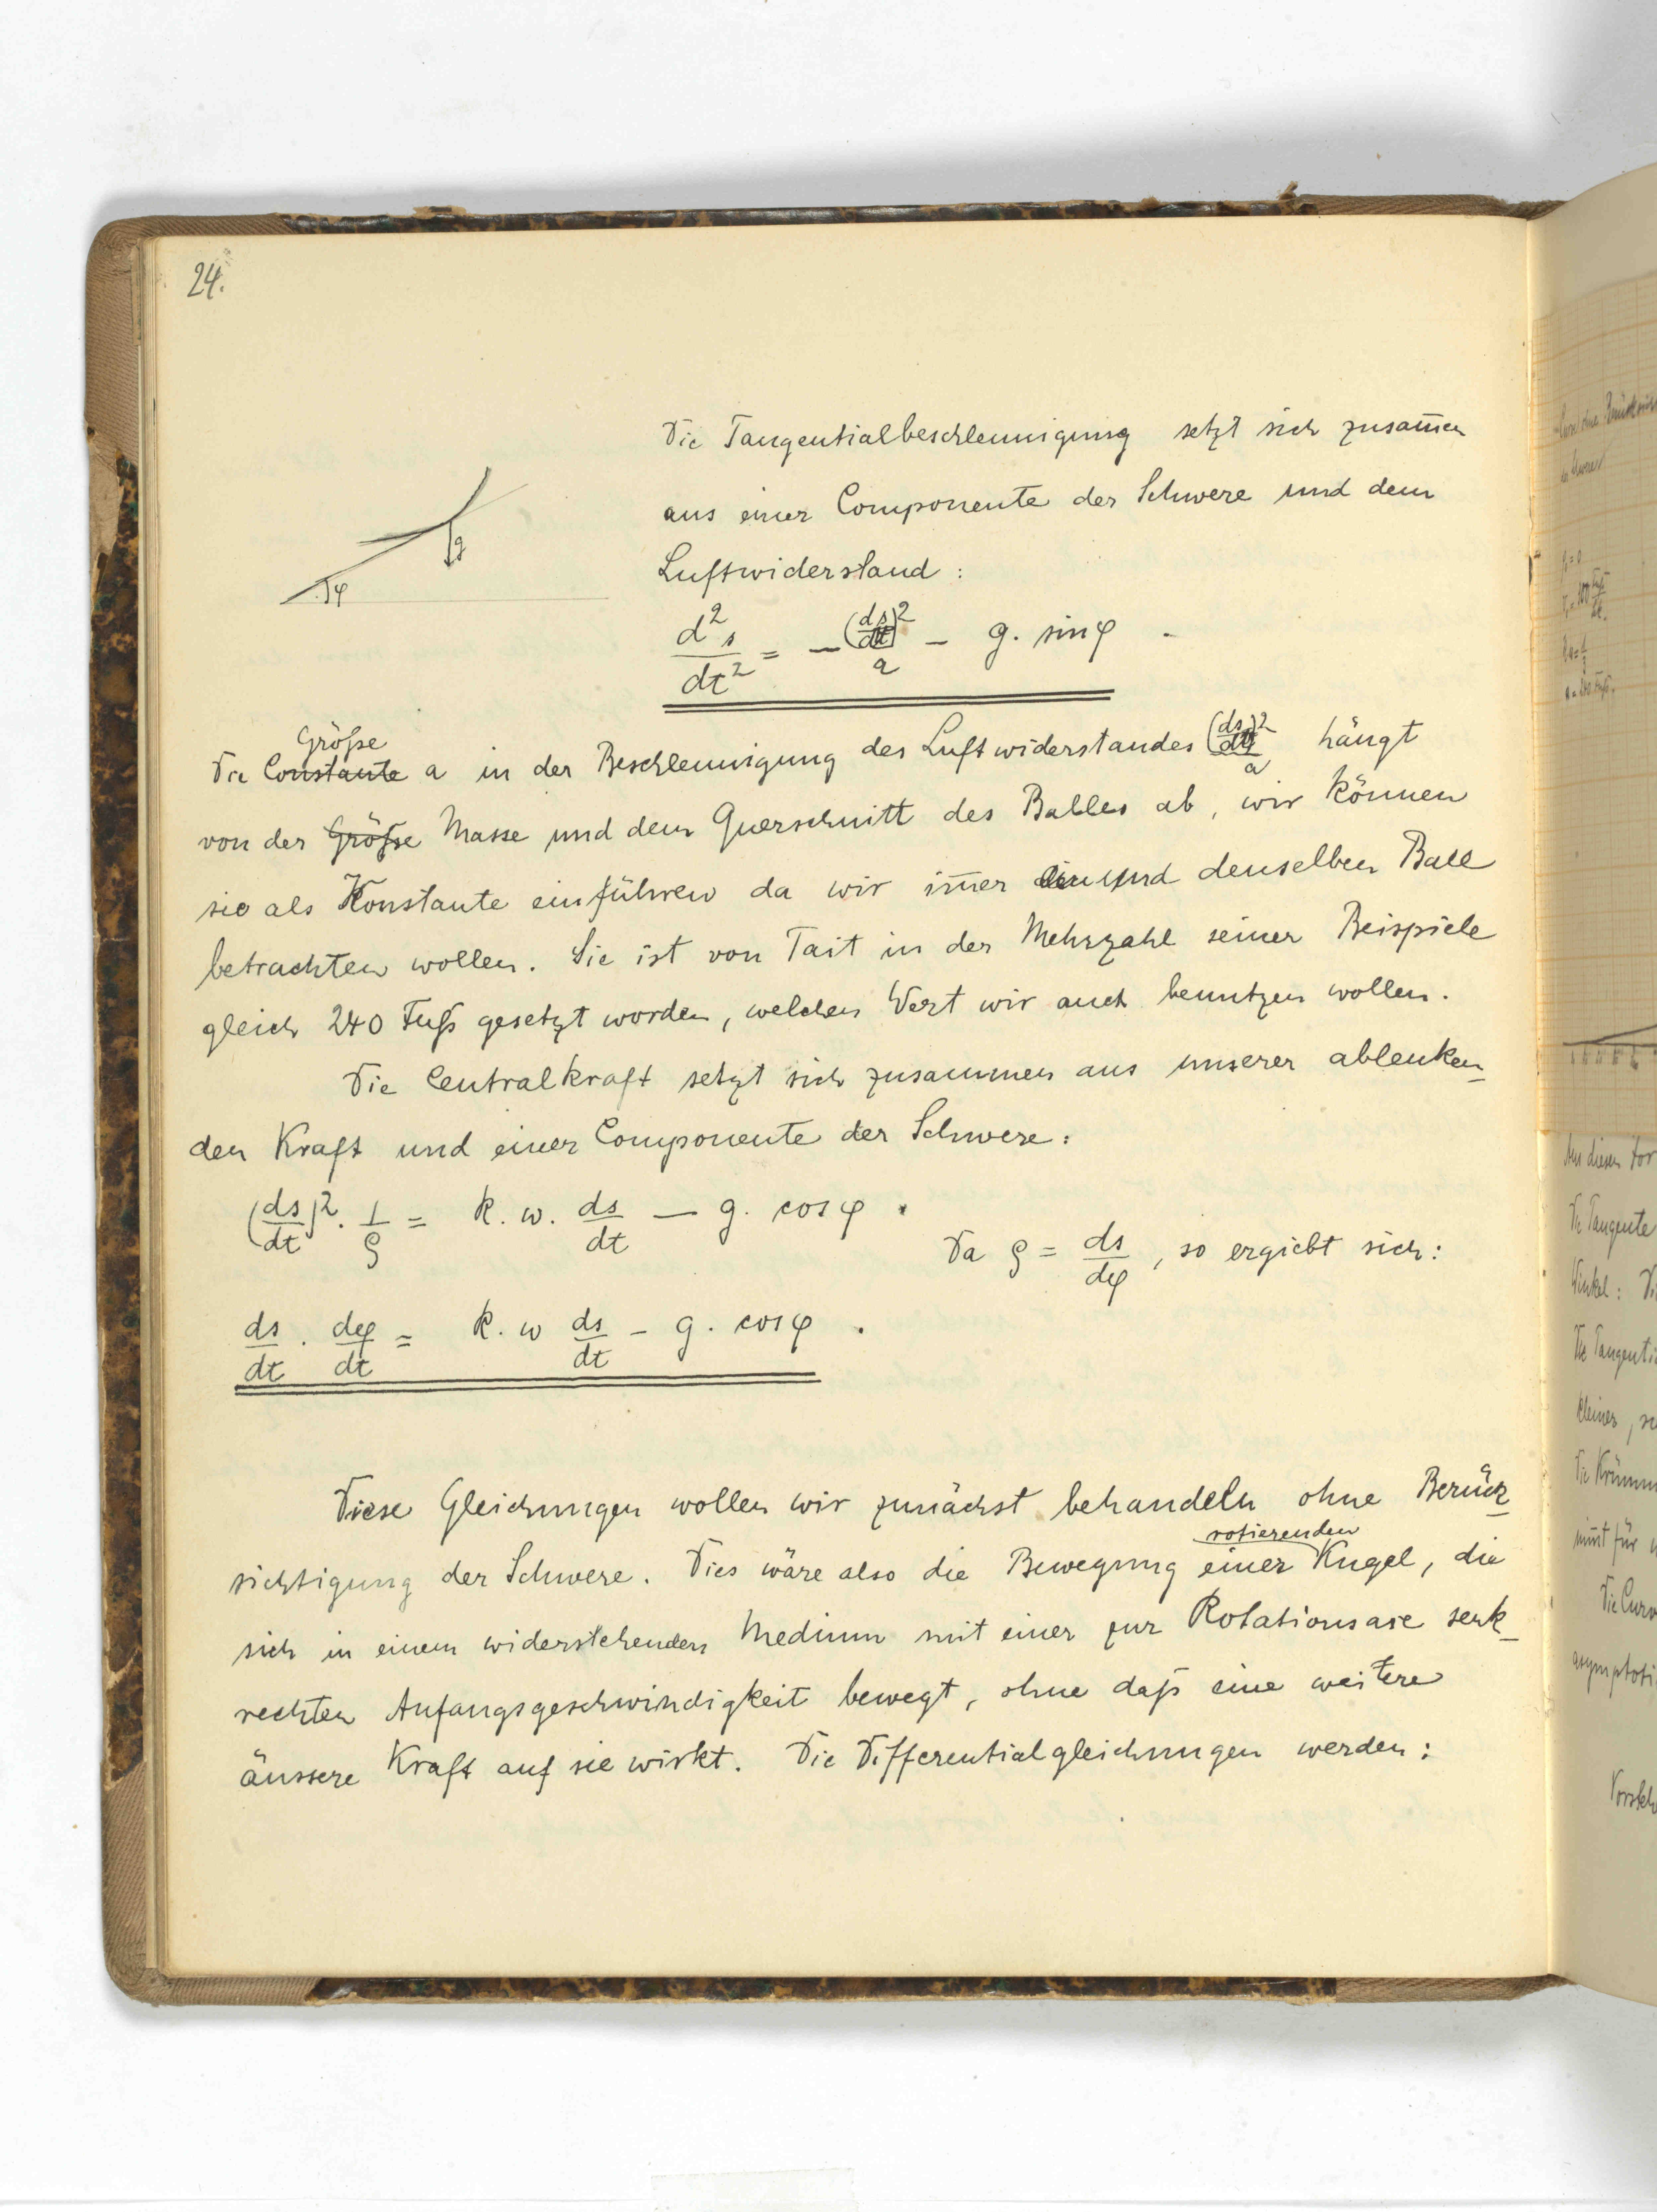 24.
Die Tangentialbeschleunigung setzt sich zusam̅en
aus einer Componente der Schwere und dem
Luftwiderstand :
g
φ
d²s/dt² = − (ds/dt)²/a − g. sin φ .
Größe
Die Constante a in der Beschleunigung des Luftwiderstandes (ds/dt)²/a hängt
von der Größe Masse und dem Querschnitt des Balles ab, wir können
sie als Konstante einführen da wir im̅er ein und denselben Ball
betrachten wollen. Sie ist von Tait in der Mehrzahl seiner Beispiele
gleich 240 Fuß gesetzt worden, welchen Wert wir auch benutzen wollen.
Die Centralkraft setzt sich zusammen aus unserer ablenken-
den Kraft und einer Componente der Schwere:
(ds/dt)² . 1/ϱ = k. w. ds/dt − g. cos φ .
Da ϱ = ds/dφ, so ergiebt sich:
ds/dt . dφ/dt = k. w ds/dt − g. cos φ .
Diese Gleichungen wollen wir zunächst behandeln ohne Berück-
rotierenden
sichtigung der Schwere. Dies wäre also die Bewegung einer Kugel, die
sich in einem widerstehenden Medium mit einer zur Rotationsaxe senk-
rechten Anfangsgeschwindigkeit bewegt, ohne daß eine weitere
äussere Kraft auf sie wirkt. Die Differentialgleichungen werden:
Aus diesen
Die Tangente
Winkel :
Die Tangenti
kleiner,
Die Krümm
nim̅t für
Die Curv
asymptoti